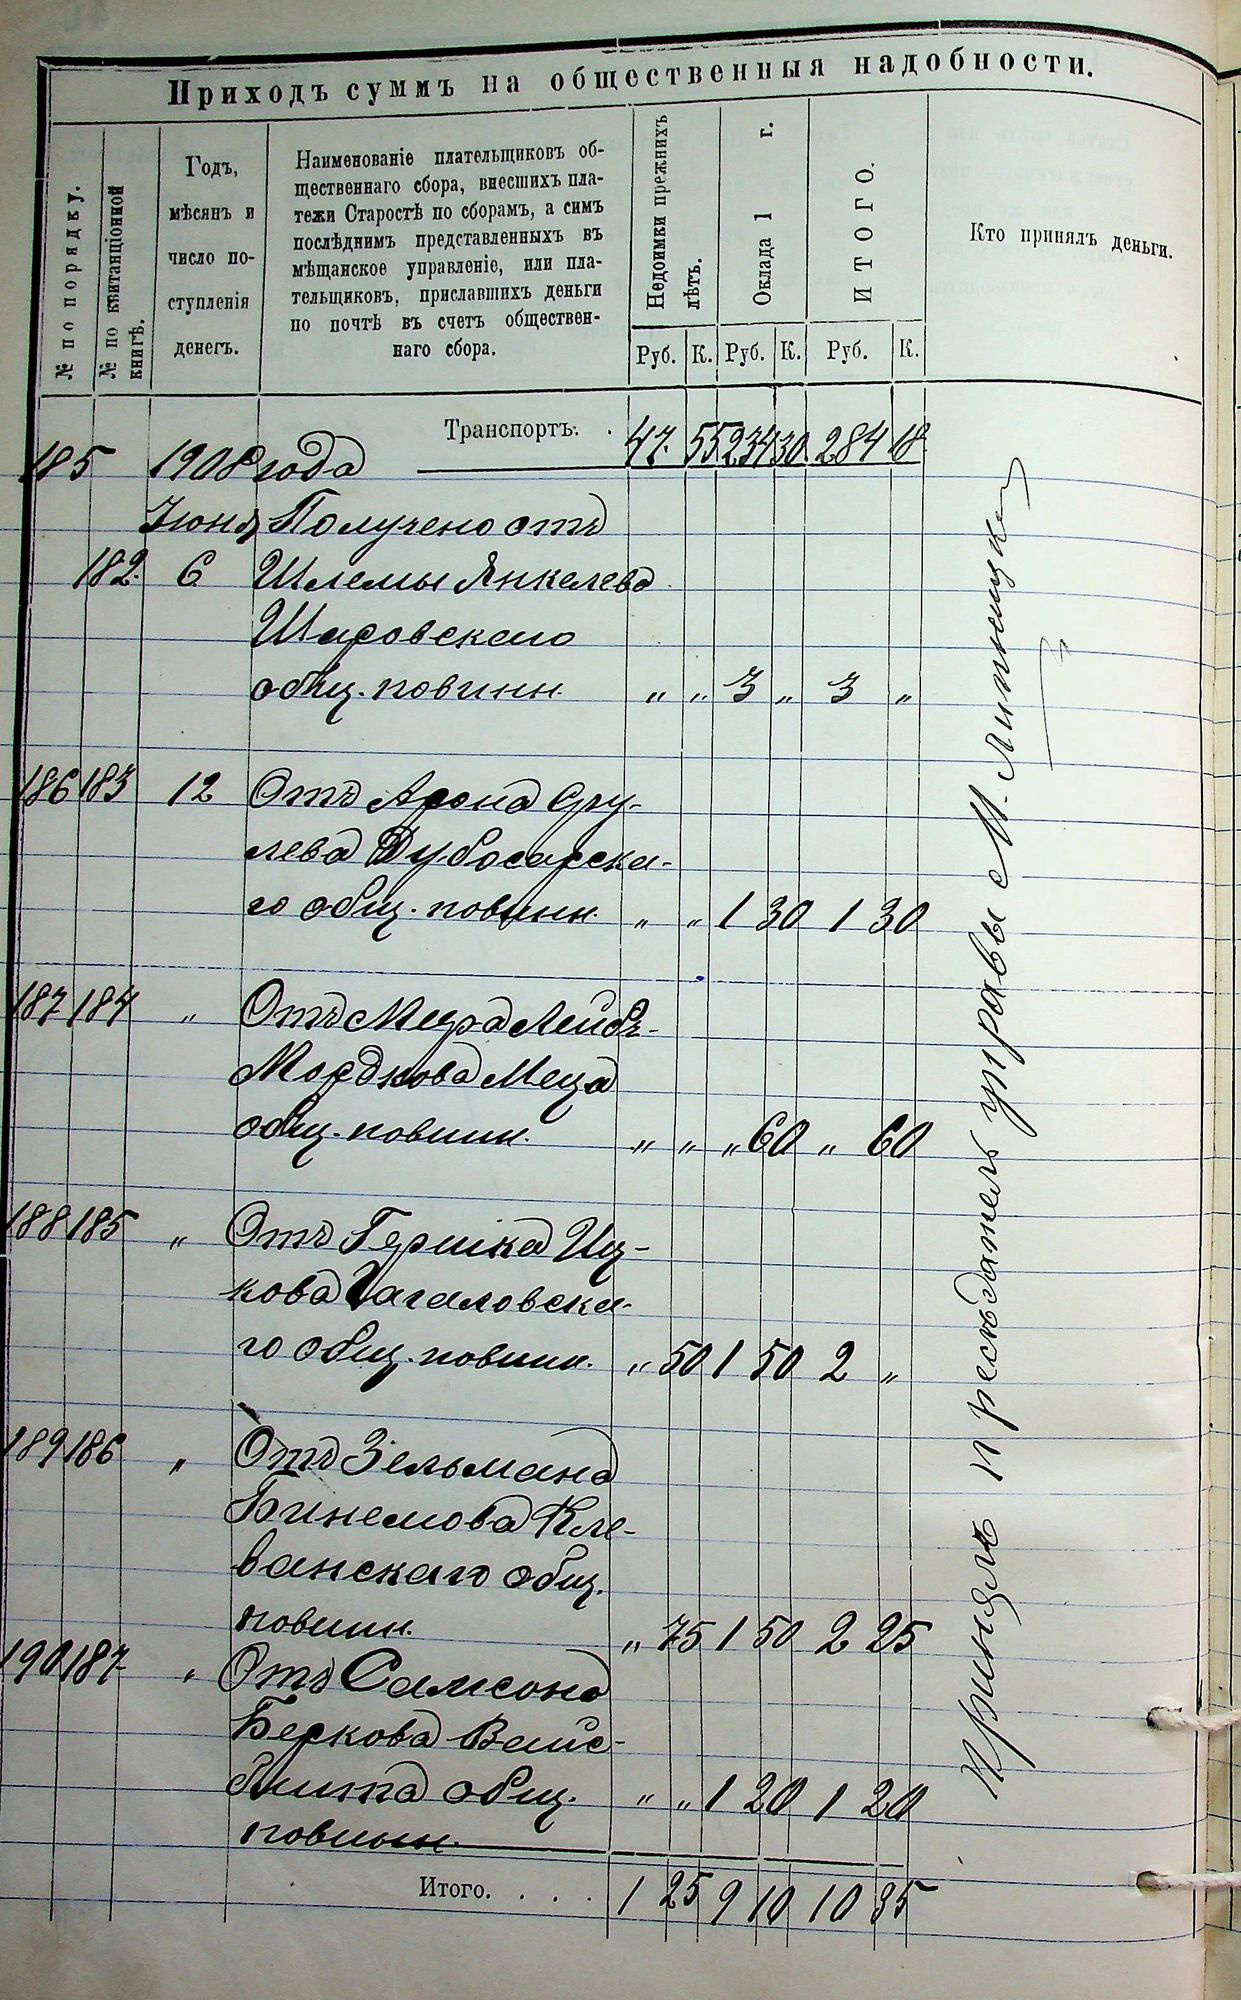 Приходъ суммъ на общественныя надобности.
№ по порядку.
№ по квитанціонной книгѣ.
Годъ,
мѣсяцъ и
число по-
ступленія
денегъ.
Наименованіе плательщиковъ об-
щественнаго сбора, внесшихъ пла-
тежи Старостѣ по сборамъ, а симъ
послѣднимъ представленныхъ въ
мѣщанское управленіе, или пла-
тельщиковъ, приславшихъ деньги
по почтѣ въ счетъ обществен-
наго сбора.
Недоимки прежнихъ
лѣтъ.
Оклада 1 г.
ИТОГО.
Кто принялъ деньги.
Руб. К. Руб. К. Руб. К.
Транспортъ. . 47. 55 234 30 284 18
185 1908 года
Іюня Получено отъ
182. 6. Шлемы Янкелева
Шаровскаго
общ. повинн. „ „ 3 „ 3 „
186 183 12 Отъ Арона Сру-
лева Дубосарска-
го общ. повинн. „ „ 1 30 1 30
187 184 „ Отъ Меера Лейбъ-
Мордкова Меца
общ. повинн. „ „ „ 60 „ 60
188 185 „ Отъ Гершка Иц-
кова Чагаловска-
го общ. повинн. „ 50 1 50 2 „
189 186 „ Отъ Зельмана
Бинемова Кле-
ванскаго общ.
повинн. „ 75 1 50 2 25
190 187 „ Отъ Самсона
Беркова Вайс-
бита общ. „ „ 1 20 1 20
повинн.
Итого. . . . 1 25 9 10 10 35
Принялъ предсѣдатель управы М. Липницкій